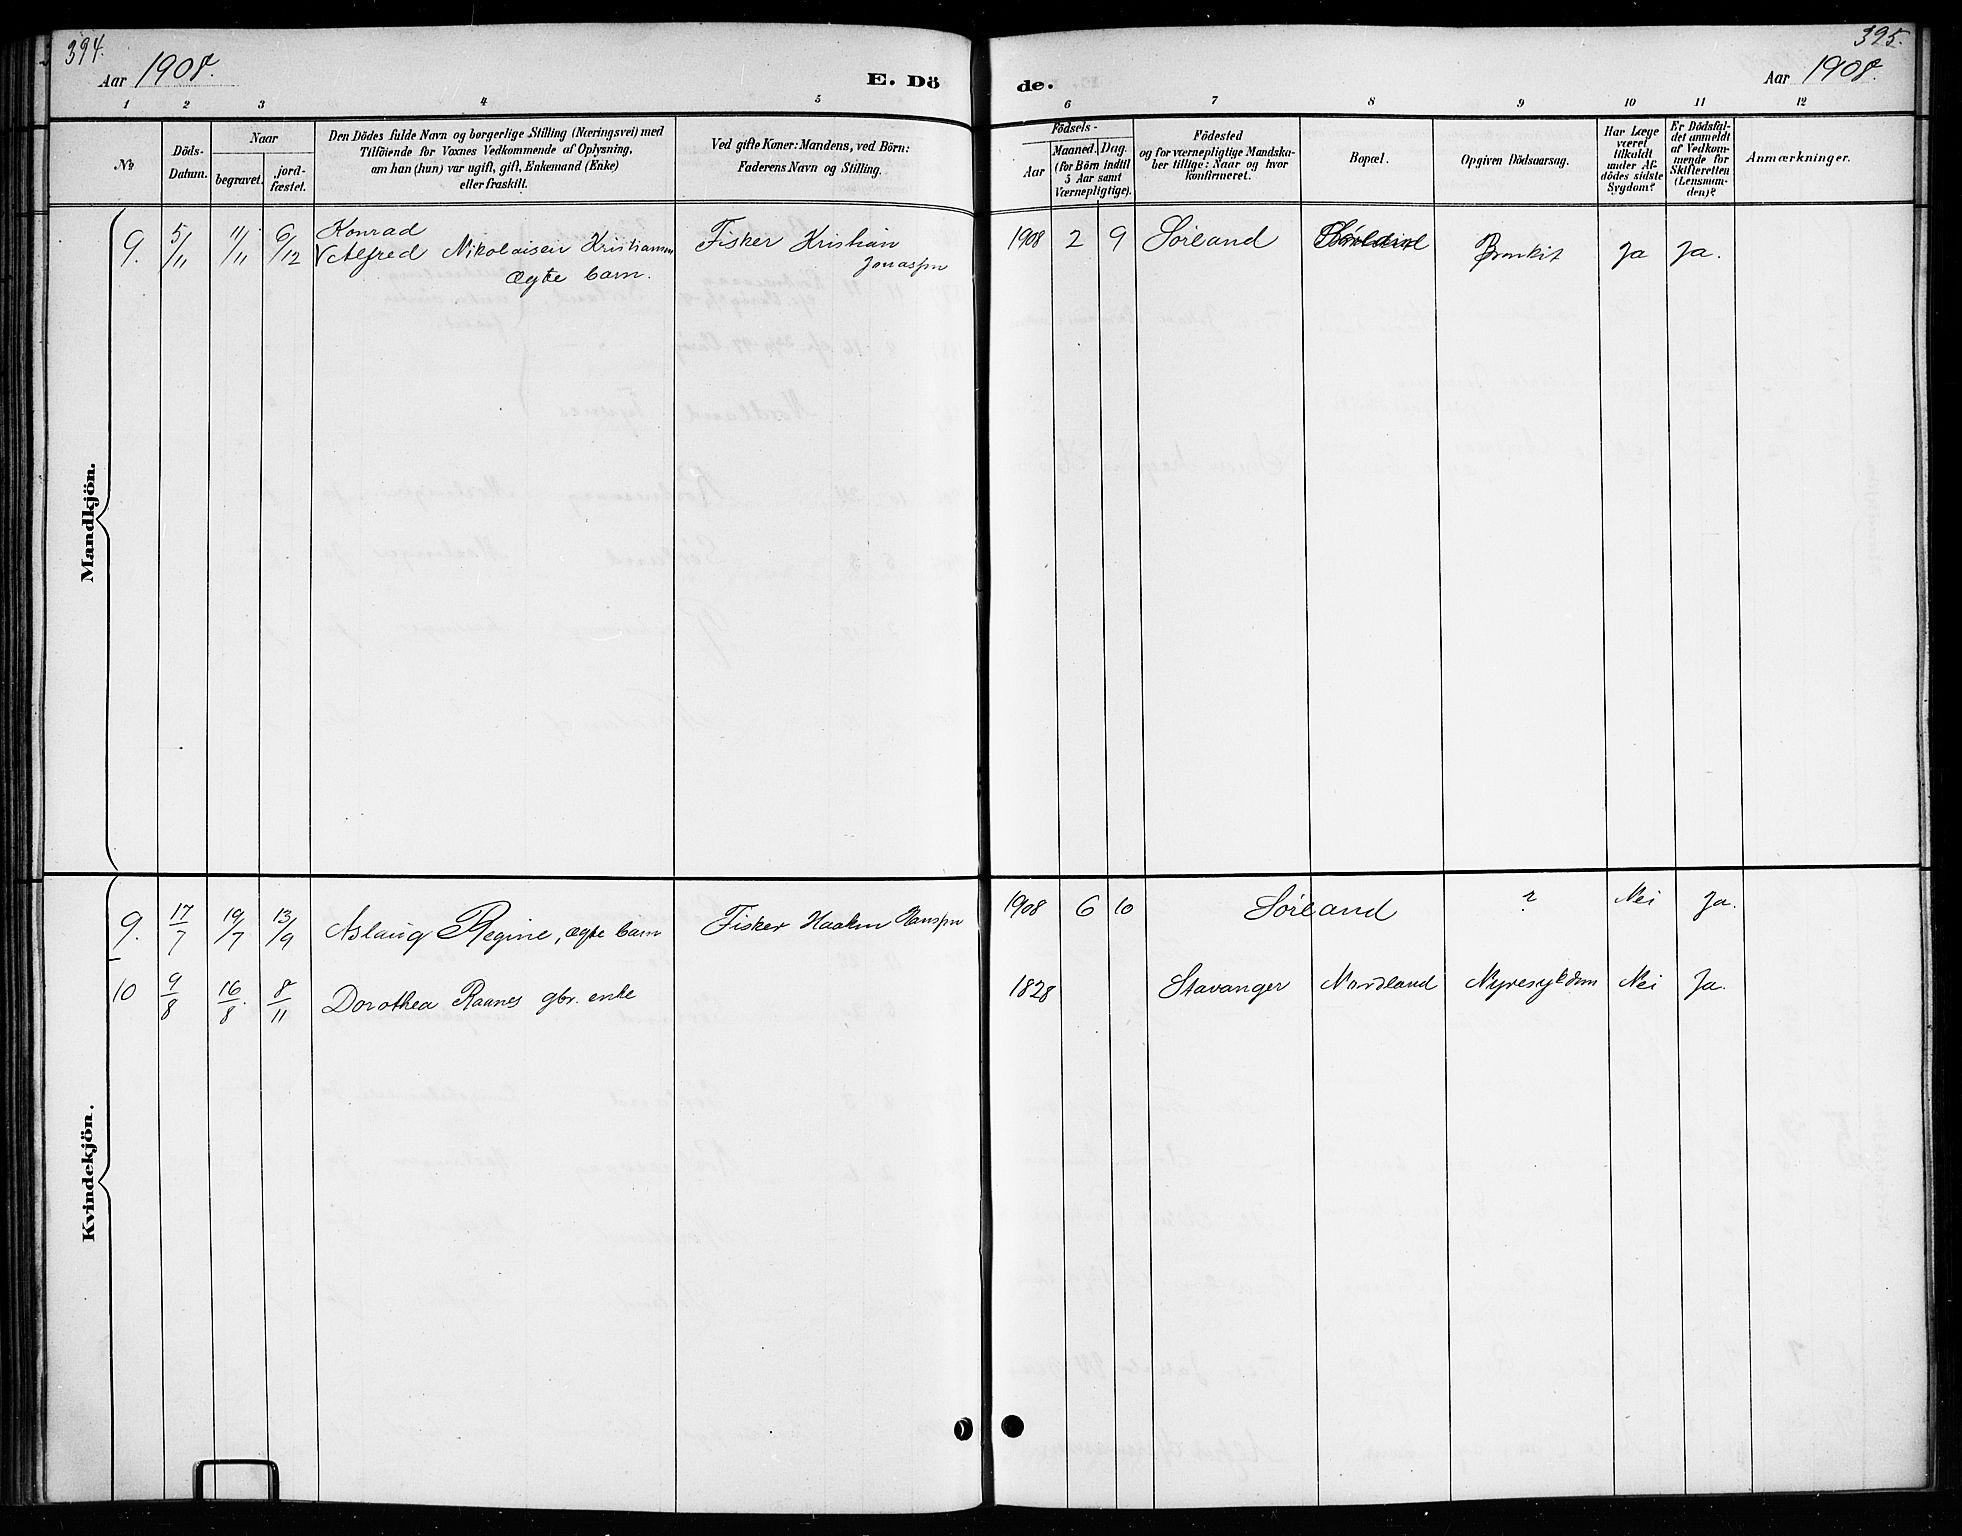 394.
Aar 1908.
E. Dö
1
2
3
4
5
No
Döds-
Datum.
Naar
begravet.
jord-
fæstet.
Den Dödes fulde Navn og borgerlige Stilling (Næringsvei) med
Tilföiende for Voxnes Vedkommende af Oplysning,
om han (hun) var ugift, gift, Enkemand (Enke)
eller fraskilt.
Ved gifte Koner: Mandens, ved Börn:
Faderens Navn og Stilling.
Mandkjön.
9. 5/11 11/11 6/12 Konrad
Alfred Nikolaisen Kristiansen
Ægte barn.
Fisker Kristian
Jonassen
Kvindekjön.
9. 17/7 19/7 13/9 Aslaug Regine, ægte barn Fisker Haakon Hanssen
10 9/8 16/8. 8/11 Dorothea Raanes gbr. enke
395.
Aar 1908.
de.
6
7
8
9
10
11
12
Födsels-
Aar
Maaned.
Dag.
(for Börn indtil
5 Aar samt
Værnepligtige).
Födested
og for værnepligtige Mandska-
ber tillige: Naar og hvor
konfirmeret.
Bopæl.
Opgiven Dödsaarsag.
Har Læge
været
tilkaldt
under Af-
dödes sidste
Sygdom?
Er Dödsfal-
det anmeldt
af Vedkom-
mende for
Skifteretten
(Lensman-
den)?
Anmærkninger.
1908 2 9 Sörland Bronkit Ja Ja.
1908 6 10 Sörland ? Nei Ja.
1828 Stavanger Nordland Nyresykdom Nei Ja.